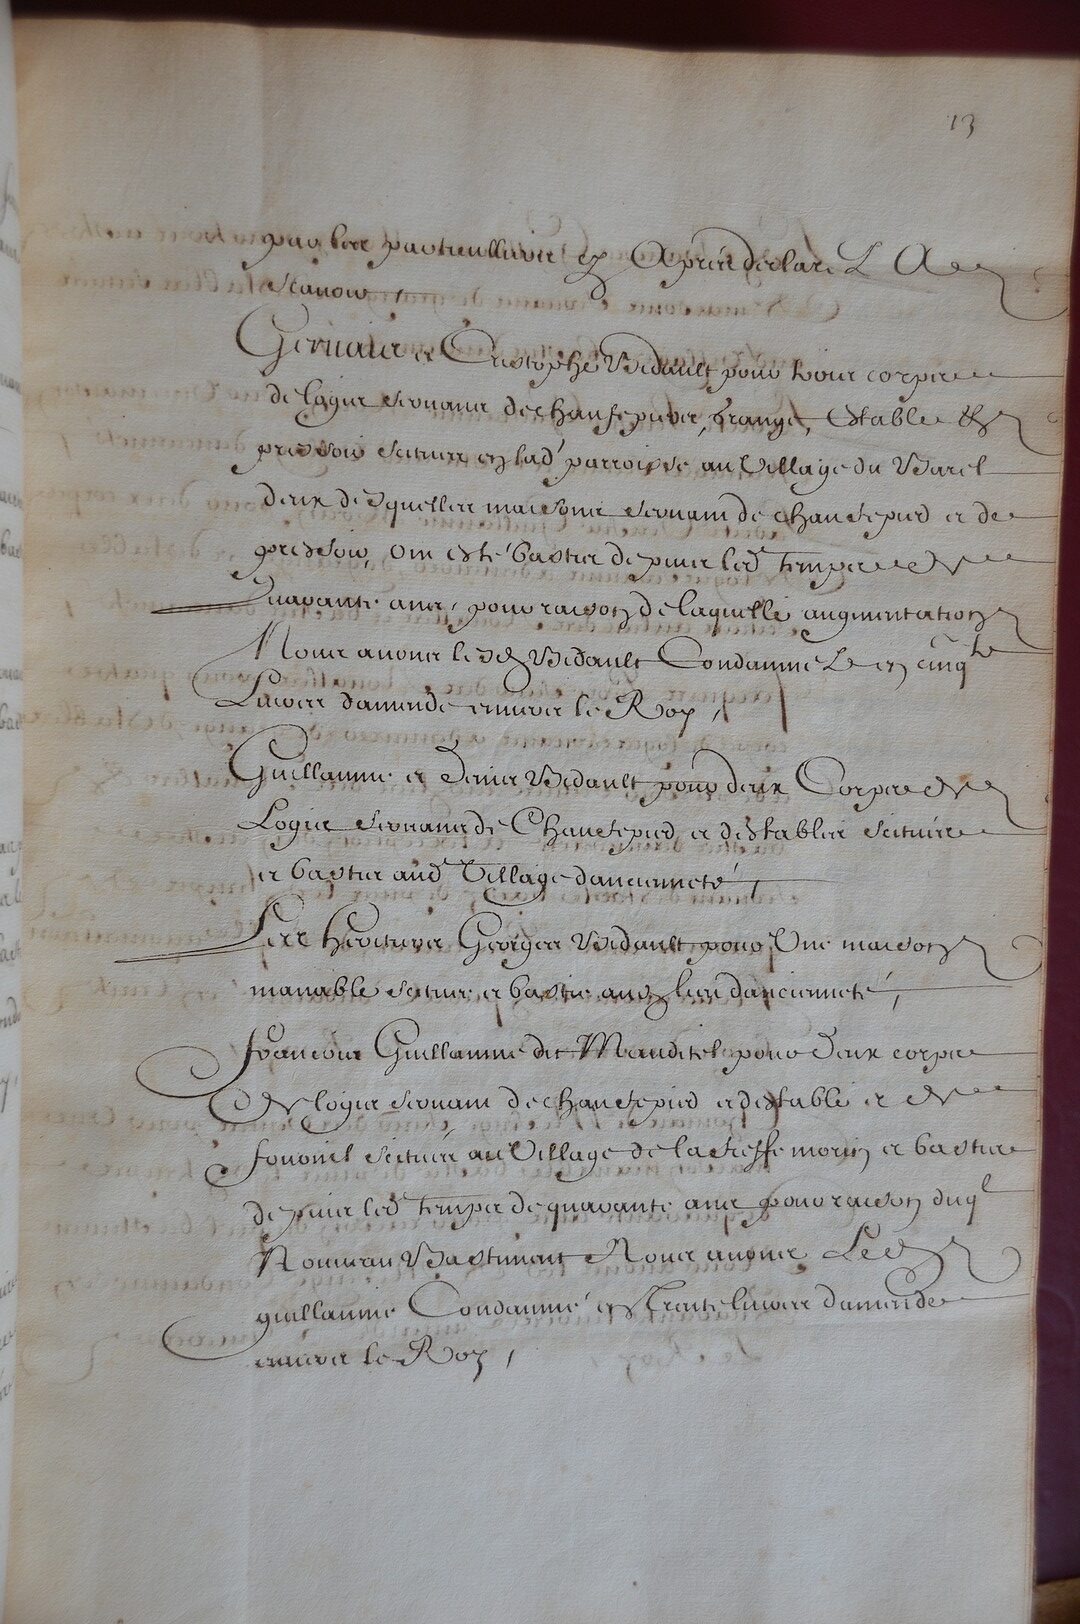 13
par les particulliers cy Apres declarez A
scavoir,
Gervais et Cristophe Vedault pour trois corps
de logis servans de chaufepied, grange, Estable Et
pressoir scituez en lad parroisse au Village du Buret
deux desquelles maisons servant de chaufepied et de
pressoir, ont esté bastis depuis led temps de
quarante ans, pour raison de laquelle augmentation
Nous avons lesd Vedault Condamné en cinqte
Livres damende envers le Roy,
Guillaume et Denis Vedault pour deux Corps de
Logis servans de Chaufepied et destables scituéz
et bastis aud Village dancienneté,
Les heritiers Georges Vedault pour Une maison
manable scituée et bastie aud lieu dancienneté,
francois Guillaume dit pour deux corps
de logis servant de chaufepied et destable et de
fournil scituéz au Village de la morin et bastis
depuis led temps de quarante ans pour raison duql
Nouveau Bastiment Nous avons Led
guillaume Condamné en trente livres damende
envers le Roy,